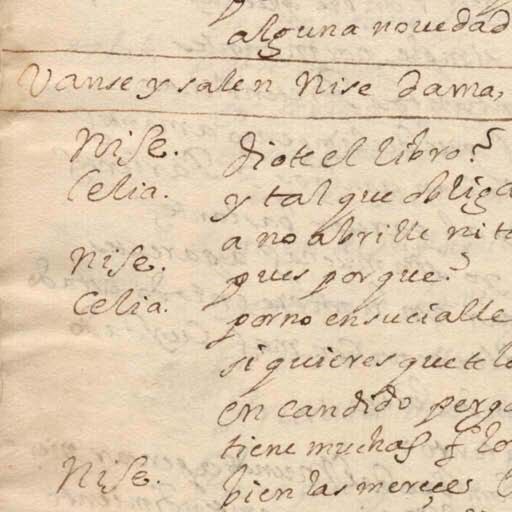 alguna novedad
Vanse y salen Nise dama,
Nise. diote el libro?
Celia. y tal que obliga
a no abrille ni to
Nise. pues por que?
Celia. por no ensucialle
si quieres que te lo
en candido perga
tiene muchas flo
Nise. bien las mereçe